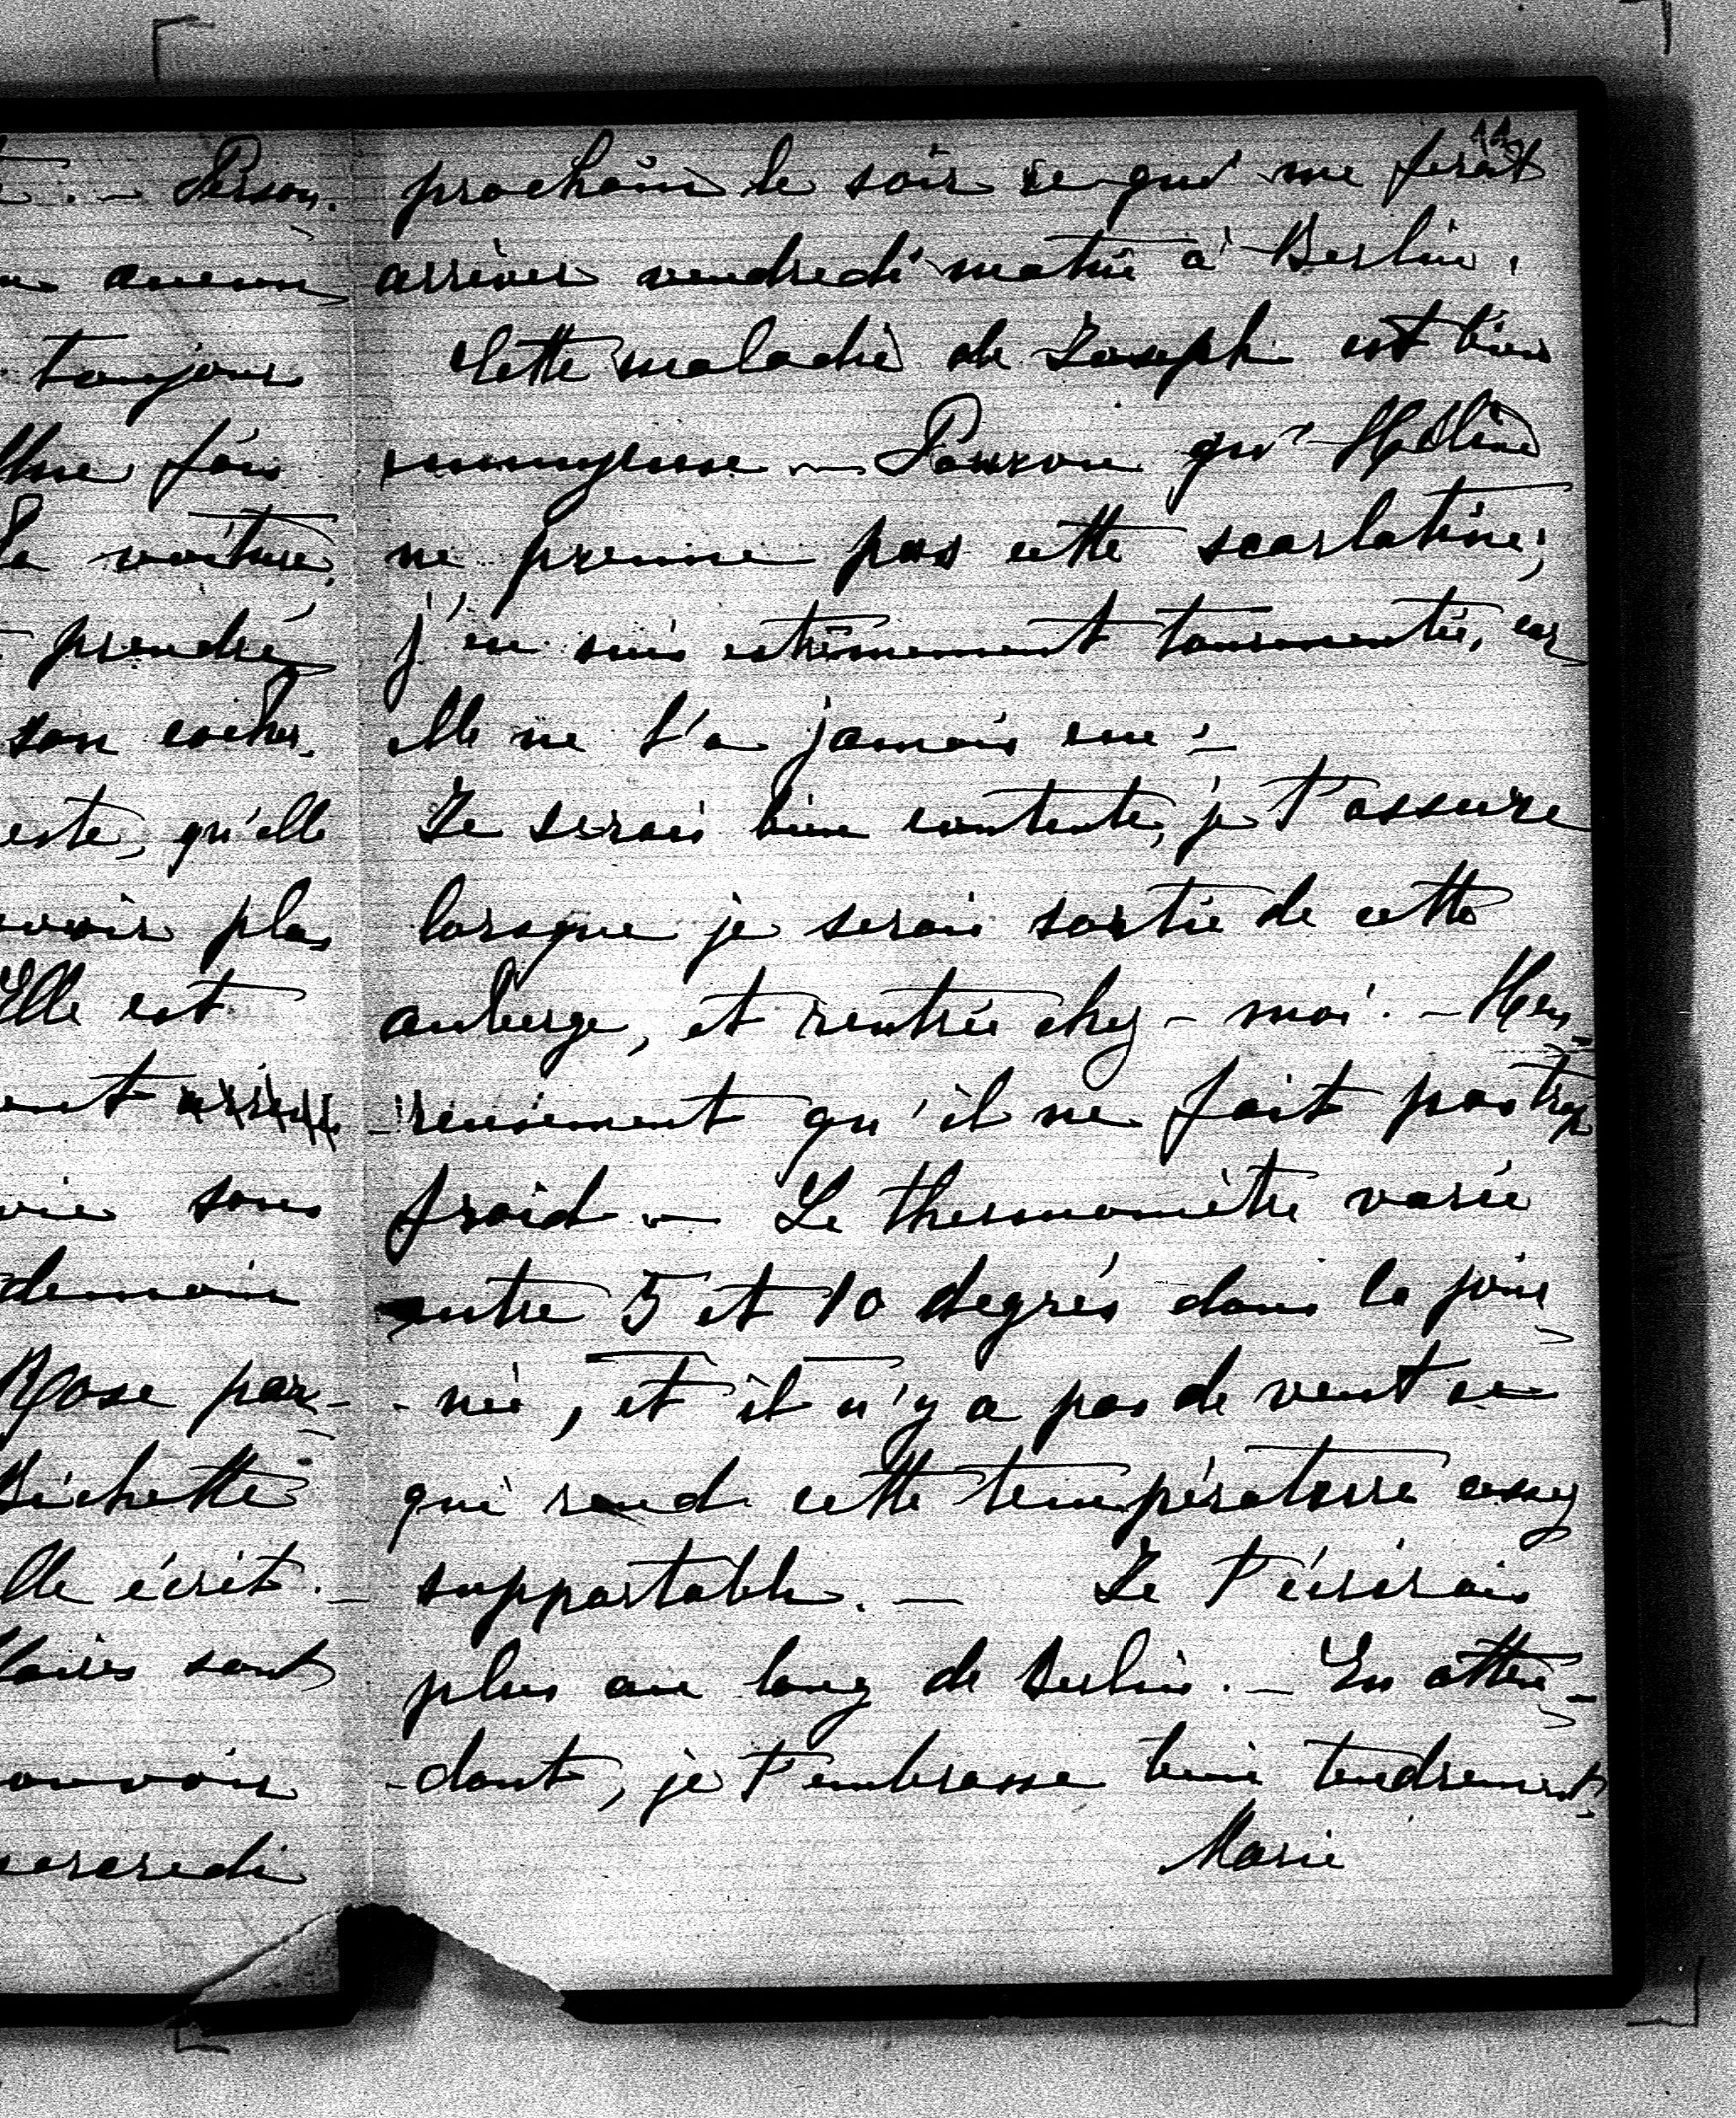 . — Person.
aucun
toujours
Une fois
La voiture,
prendre
son cocher.
este, qu'elle
voir plus
Elle est
ent
vie sous
demain
Rose par-
Bichette
lle écrit. —
laires sont
ouvoir
mercredi
prochain le soir ce qui me ferait
arriver vendredi matin à Berlin.
Cette maladie de Joseph est bien
ennuyeuse — Pourvu qu'Hélène
ne prenne pas cette scarlatine;
j'en suis extrêmement tourmentée, car
elle ne l'a jamais eue. —
Je serais bien contente, je t'assure
lorsque je serais sortie de cette
auberge, et rentrée chez-moi. — Heu-
-reusement qu'il ne fait pas trop
froid — Le thermomètre varie
entre 5 et 10 degrés dans la jour-
-née, et il n'y a pas de vent ce
qui rend cette température assez
supportable. — Je t'écrirais
plus au long de Berlin. — En atten-
-dant, je t'embrasse bien tendrement.
Marie